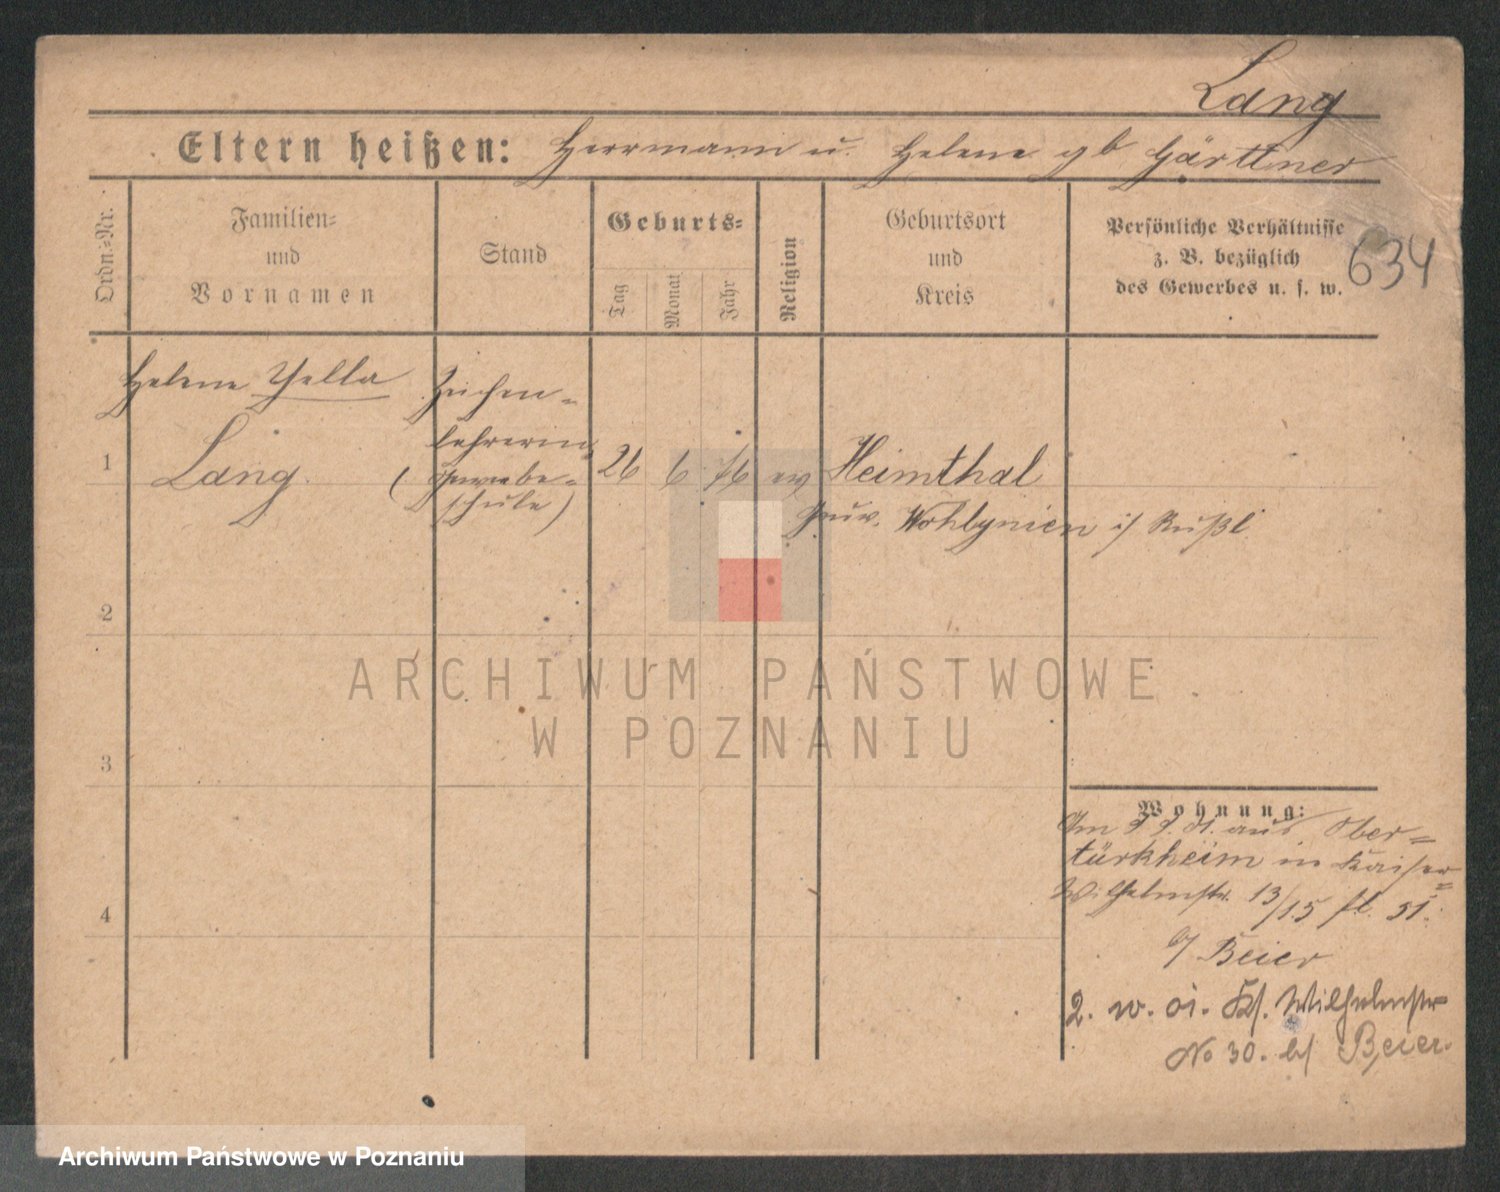 Lang
Eltern heißen: Herrmann u. Helene gb Gärttner
Ordn.=Nr.
Familien=
und
Vornamen
Stand
Geburts=
Tag
Monat
Jahr
Religion
Geburtsort
und
Kreis
Persönliche Verhältnisse
z. B. bezüglich
des Gewerbes u. s. w.
634
Helene Yella
Lang
Zeichen=
lehrerin
(Gewerbe=
schule)
1
26 6 76 ev Heimthal
Gouv. Wohlynien i/ Rußl.
2
3
4
Wohnung:
Am 01. aus Ober=
türkheim in Kaiser=
Wilhelmstr. 13/15 II.
b/ Beier
2. Wilhelmstr
No 30. b/ Beier.
ARCHIWUM PAŃSTWOWE
W POZNANIU
Archiwum Państwowe w Poznaniu